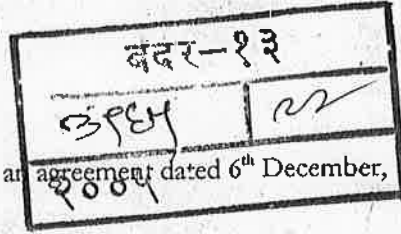 बदर-१३
७९६५ २२
an agreement dated 6th December,
२००५